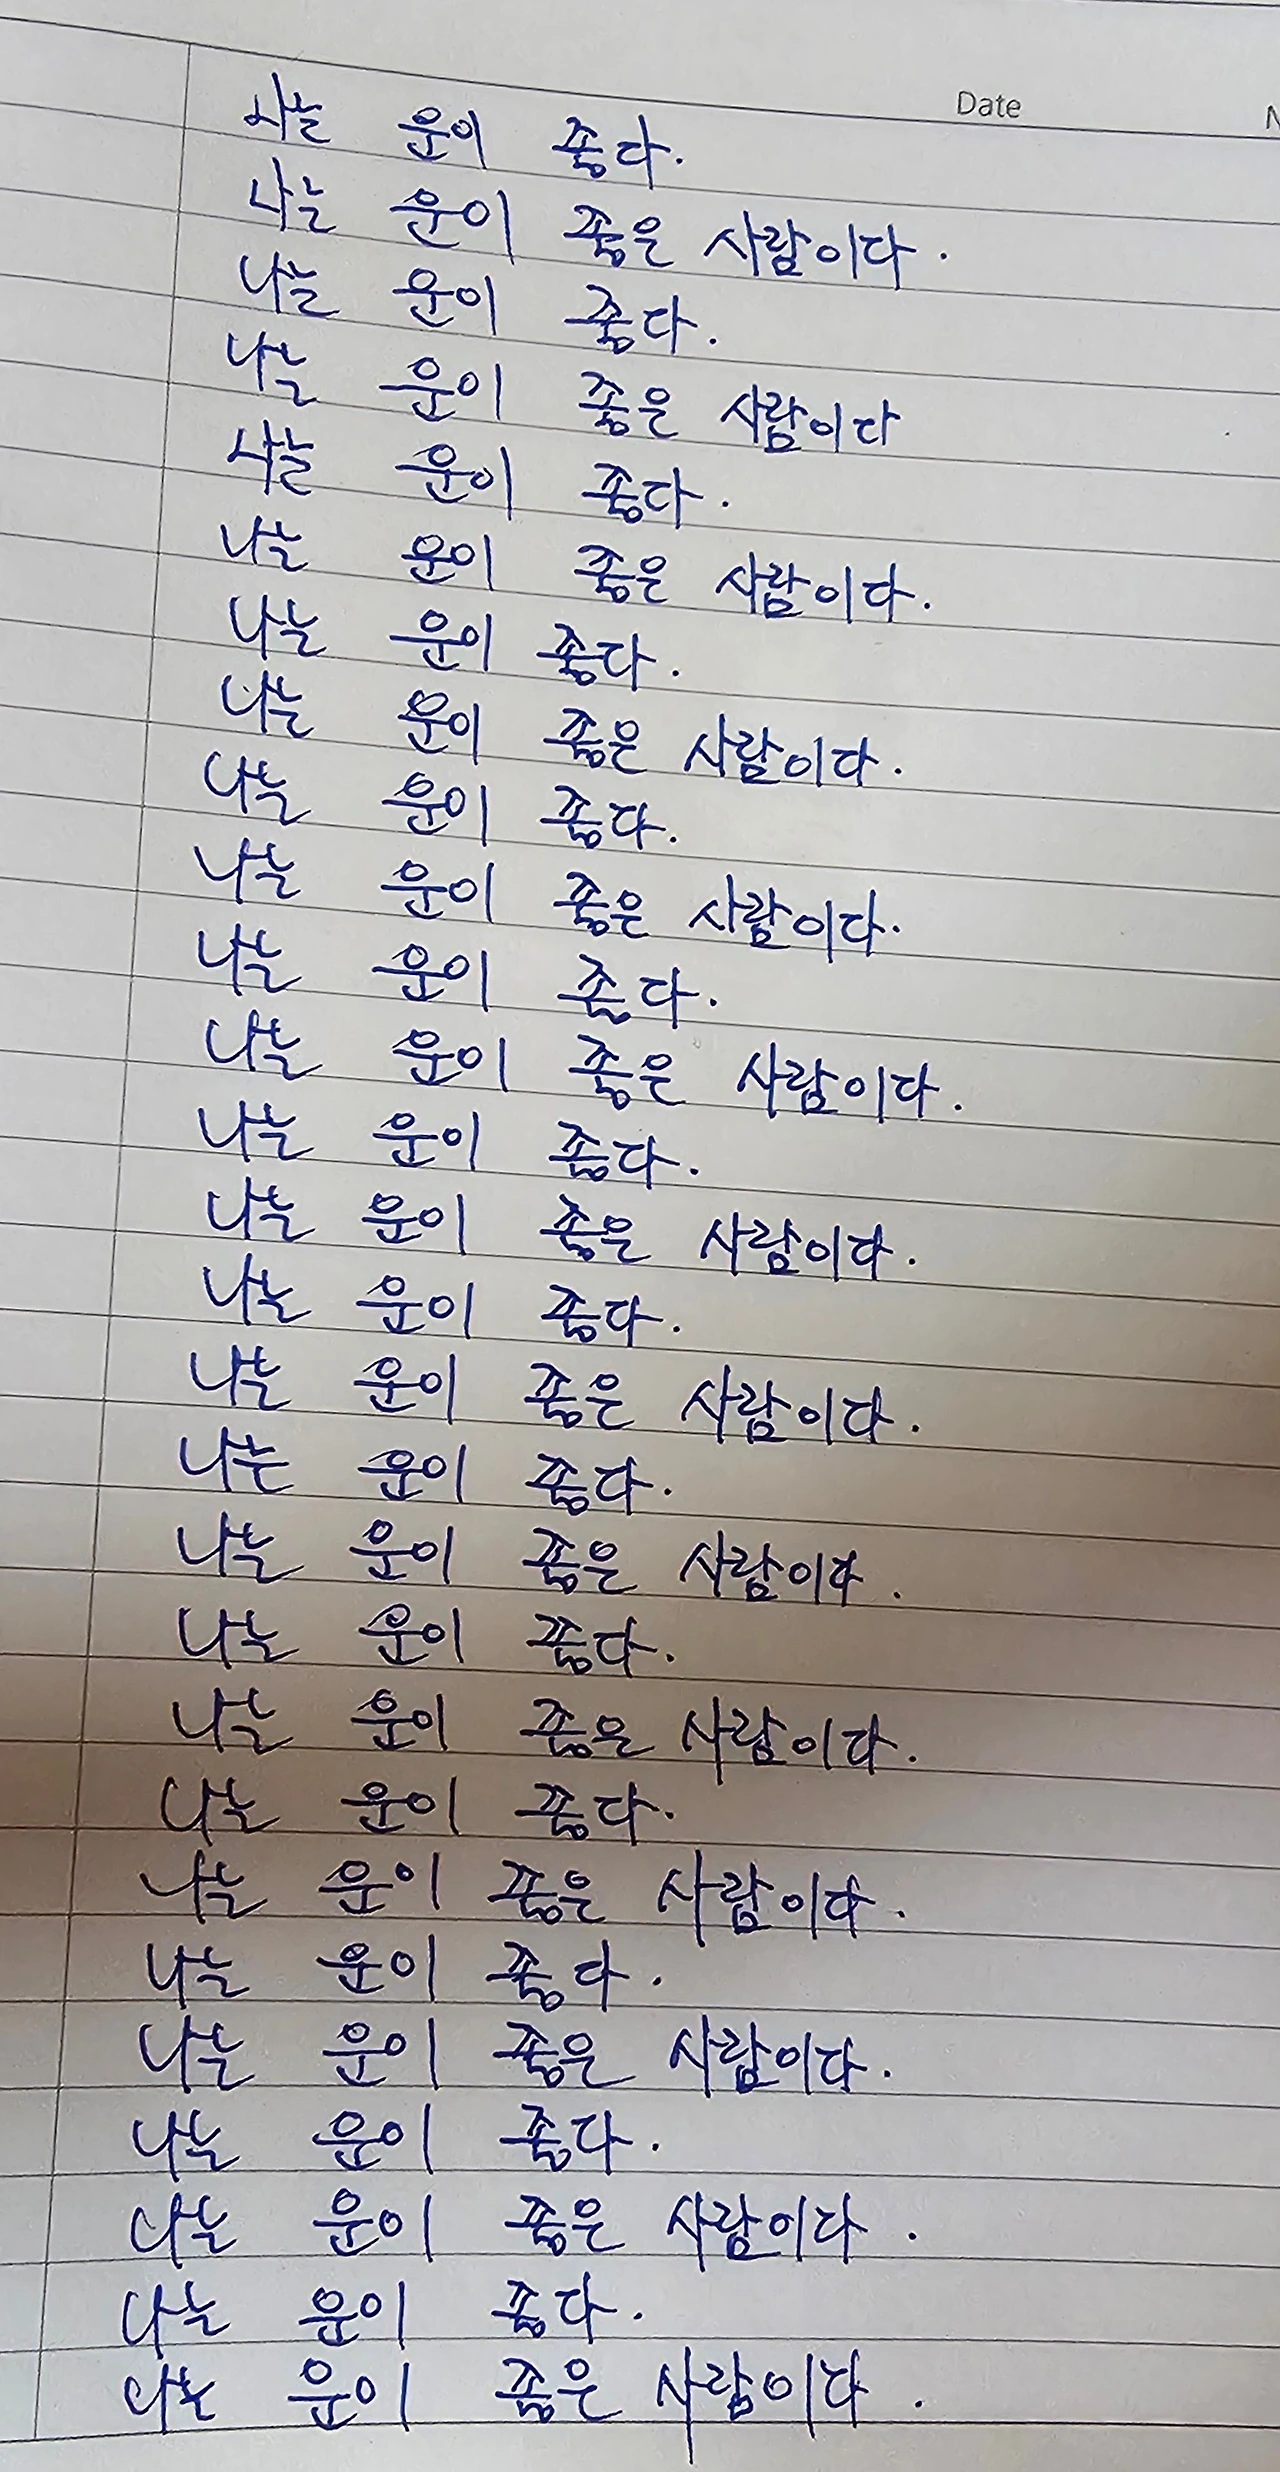 Date
나는 운이 좋다.
나는 운이 좋은 사람이다.
나는 운이 좋다.
나는 운이 좋은 사람이다
나는 운이 좋다.
나는 운이 좋은 사람이다.
나는 운이 좋다.
나는 운이 좋은 사람이다.
나는 운이 좋다.
나는 운이 좋은 사람이다.
나는 운이 좋다.
나는 운이 좋은 사람이다.
나는 운이 좋다.
나는 운이 좋은 사람이다.
나는 운이 좋다.
나는 운이 좋은 사람이다.
나는 운이 좋다.
나는 운이 좋은 사람이다.
나는 운이 좋다.
나는 운이 좋은 사람이다.
나는 운이 좋다.
나는 운이 좋은 사람이다.
나는 운이 좋다.
나는 운이 좋은 사람이다.
나는 운이 좋다.
나는 운이 좋은 사람이다.
나는 운이 좋다.
나는 운이 좋은 사람이다.